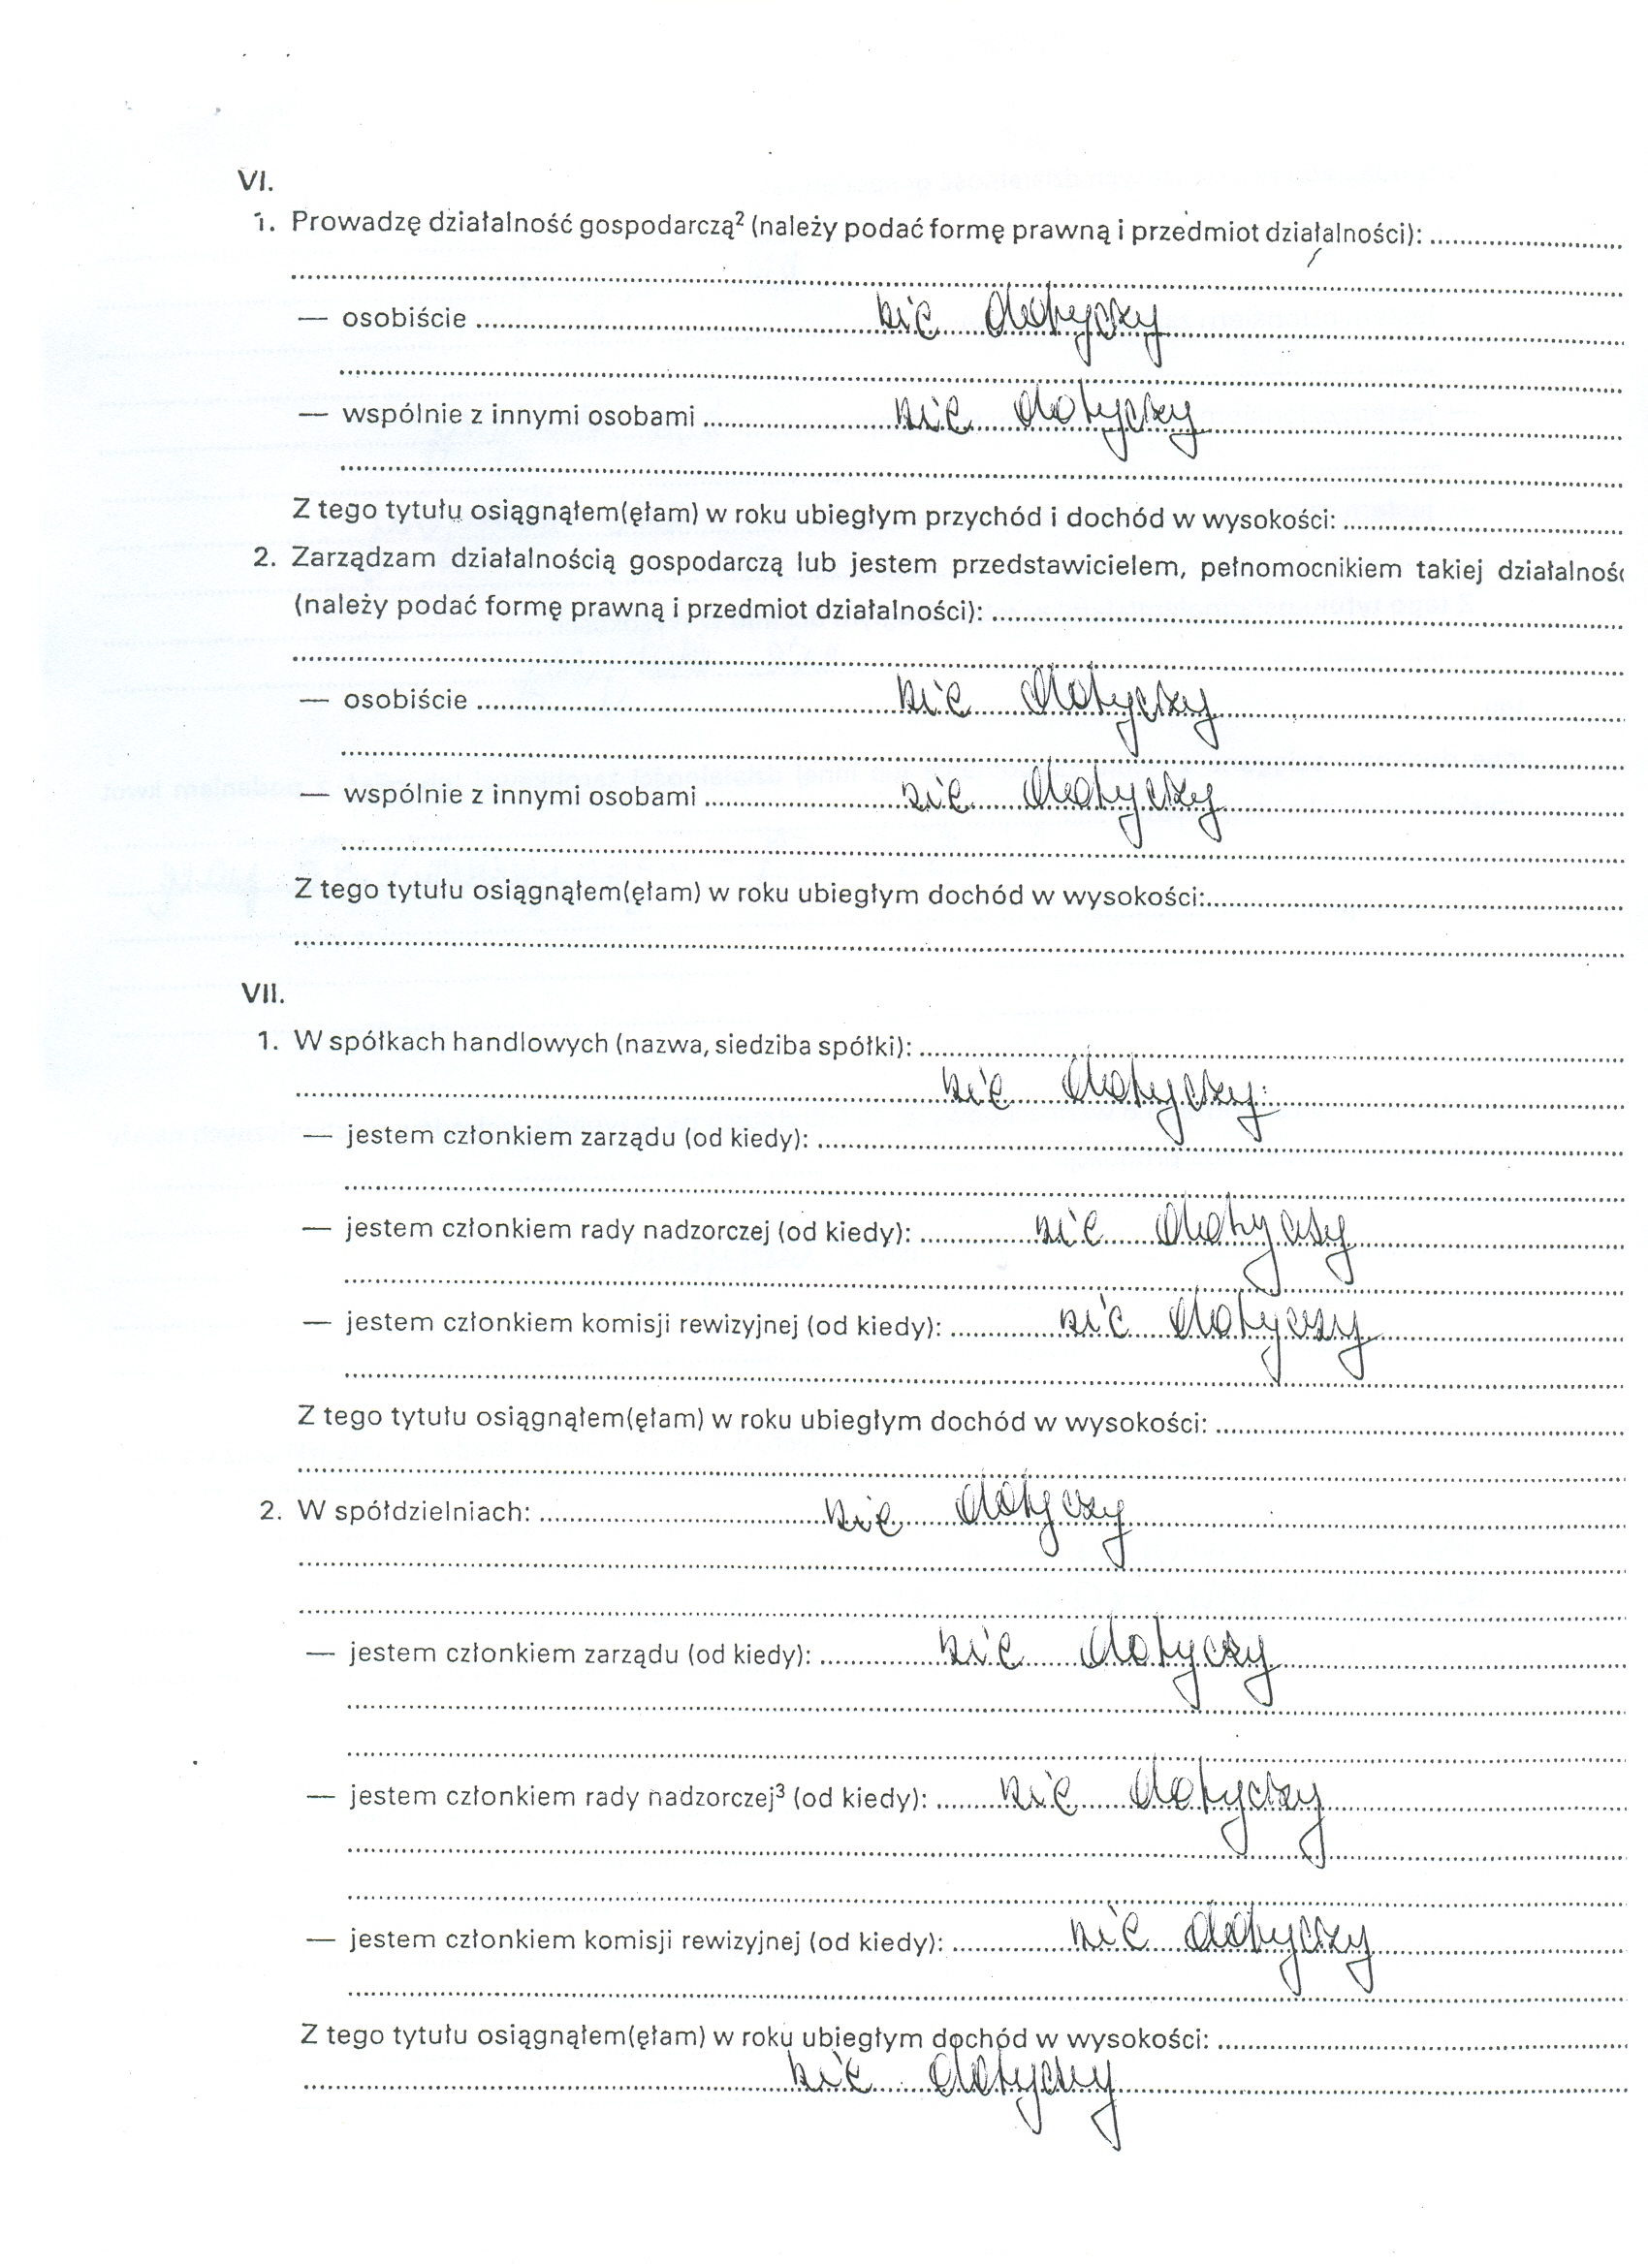 VI.
1. Prowadzę działalność gospodarczą² (należy podać formę prawną i przedmiot działalności):
— osobiście nie dotyczy
— wspólnie z innymi osobami nie dotyczy
Z tego tytułu osiągnąłem(ęłam) w roku ubiegłym przychód i dochód w wysokości:
2. Zarządzam działalnością gospodarczą lub jestem przedstawicielem, pełnomocnikiem takiej działalnośc
(należy podać formę prawną i przedmiot działalności):
— osobiście nie dotyczy
— wspólnie z innymi osobami nie dotyczy
Z tego tytułu osiągnąłem(ęłam) w roku ubiegłym dochód w wysokości:
VII.
1. W spółkach handlowych (nazwa, siedziba spółki):
nie dotyczy
— jestem członkiem zarządu (od kiedy):
— jestem członkiem rady nadzorczej (od kiedy): nie dotyczy
— jestem członkiem komisji rewizyjnej (od kiedy): nie dotyczy
Z tego tytułu osiągnąłem(ęłam) w roku ubiegłym dochód w wysokości:
2. W spółdzielniach: nie dotyczy
— jestem członkiem zarządu (od kiedy): nie dotyczy
— jestem członkiem rady nadzorczej³ (od kiedy): nie dotyczy
— jestem członkiem komisji rewizyjnej (od kiedy): nie dotyczy
Z tego tytułu osiągnąłem(ęłam) w roku ubiegłym dochód w wysokości:
nie dotyczy